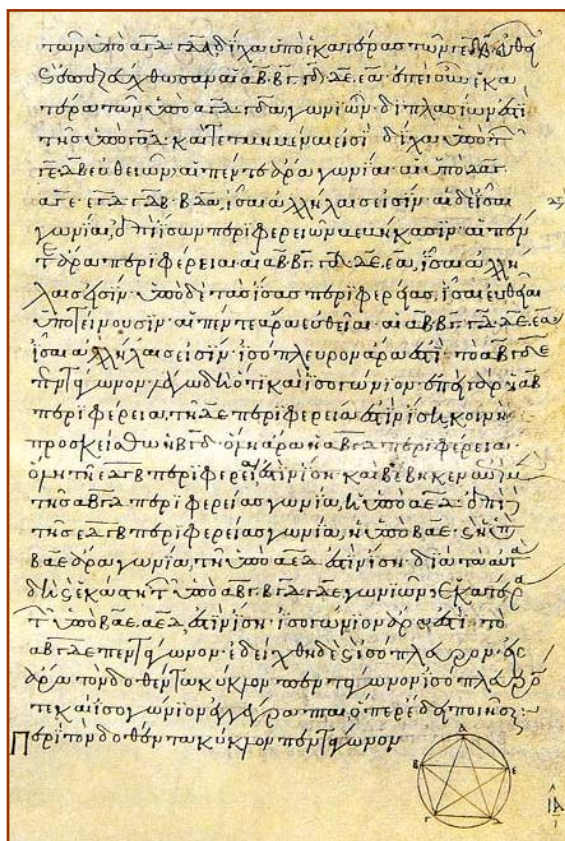 τῶν ὑπὸ αγδ γδα, δίχα ὑπὸ ἑκατέρας τῶν γε δβ εὐθει
ϛ ἐπεζεύχθωσαν αἱ αβ. βγ. γδ. δε. εα. ἐπεὶ οὖν ἑκα
τέρα τῶν ὑπὸ αγδ γδα, γωνιῶν διπλασίων ἐστὶ
τῆς ὑπὸ γαδ. καὶ τετμημέναι εἰσὶ δίχα ὑπὸ τ
γε δβ εὐθειῶν, αἱ πέντε ἄρα γωνίαι αἱ ὑπὸ δαγ.
αγε. εγδ. γδβ. βδα, ἴσαι ἀλλήλαις εἰσίν. αἱ δὲ ἴσαι
γωνίαι, ἐπὶ ἴσων περιφερειῶν βεβήκασιν. αἱ πέν
τε ἄρα περιφέρειαι αἱ αβ. βγ. γδ. δε. εα, ἴσαι ἀλλή
λαις εἰσίν. ὑπὸ δὲ τὰς ἴσας περιφερείας, ἴσαι εὐθεῖαι
ὑποτείνουσιν. αἱ πέντε ἄρα εὐθεῖαι αἱ αβ βγ. γδ. δε. εα
ἴσαι ἀλλήλαις εἰσίν. ἰσόπλευρον ἄρα ἐστὶ. τὸ αβγδε
πεντάγωνον. λέγω δὴ ὅτι καὶ ἰσογώνιον. ἐπεὶ γὰρ ἡ αβ
περιφέρεια, τῆ δε περιφερεία ἐστὶν ἴση, κοινὴ
προσκείσθω ἡ βγδ. ὅλη ἄρα ἡ αβγδ περιφέρεια.
ὅλη τῆ εδγβ περιφερεία ἐστὶν ἴση. καὶ βέβηκεν ἐπὶ μ
τῆς αβγδ περιφερείας γωνία, ἡ ὑπὸ αεδ. ἐπὶ
τῆς εδγβ περιφερείας γωνία, ἡ ὑπὸ βαε. ϛ ἡ ὑπ
βαε ἄρα γωνία, τῆ ὑπὸ αεδ ἐστὶν ἴση. διὰ τὰ αὐτὰ
δὴ ϛ ἑκάστη τ ὑπὸ αβγ. βγδ γδε γωνιῶν, ἑκατέρα
τ ὑπὸ βαε. αεδ, ἐστὶν ἴση. ἰσογώνιον ἄρα ἐστὶ τὸ
αβγδε πεντάγωνον. ἐδείχθη δὲ ϛ ἰσόπλευρον. εἰς
ἄρα τὸν δοθέντα κύκλον πεντάγωνον ἰσόπλευρό
τε καὶ ἰσογώνιον ἐγγέγραπται, ὅπερ ἔδει ποιῆσαι:
Περὶ τὸν δοθέντα κύκλον πεντάγωνον
Α
Β Ε
Γ Δ
ΙΑ